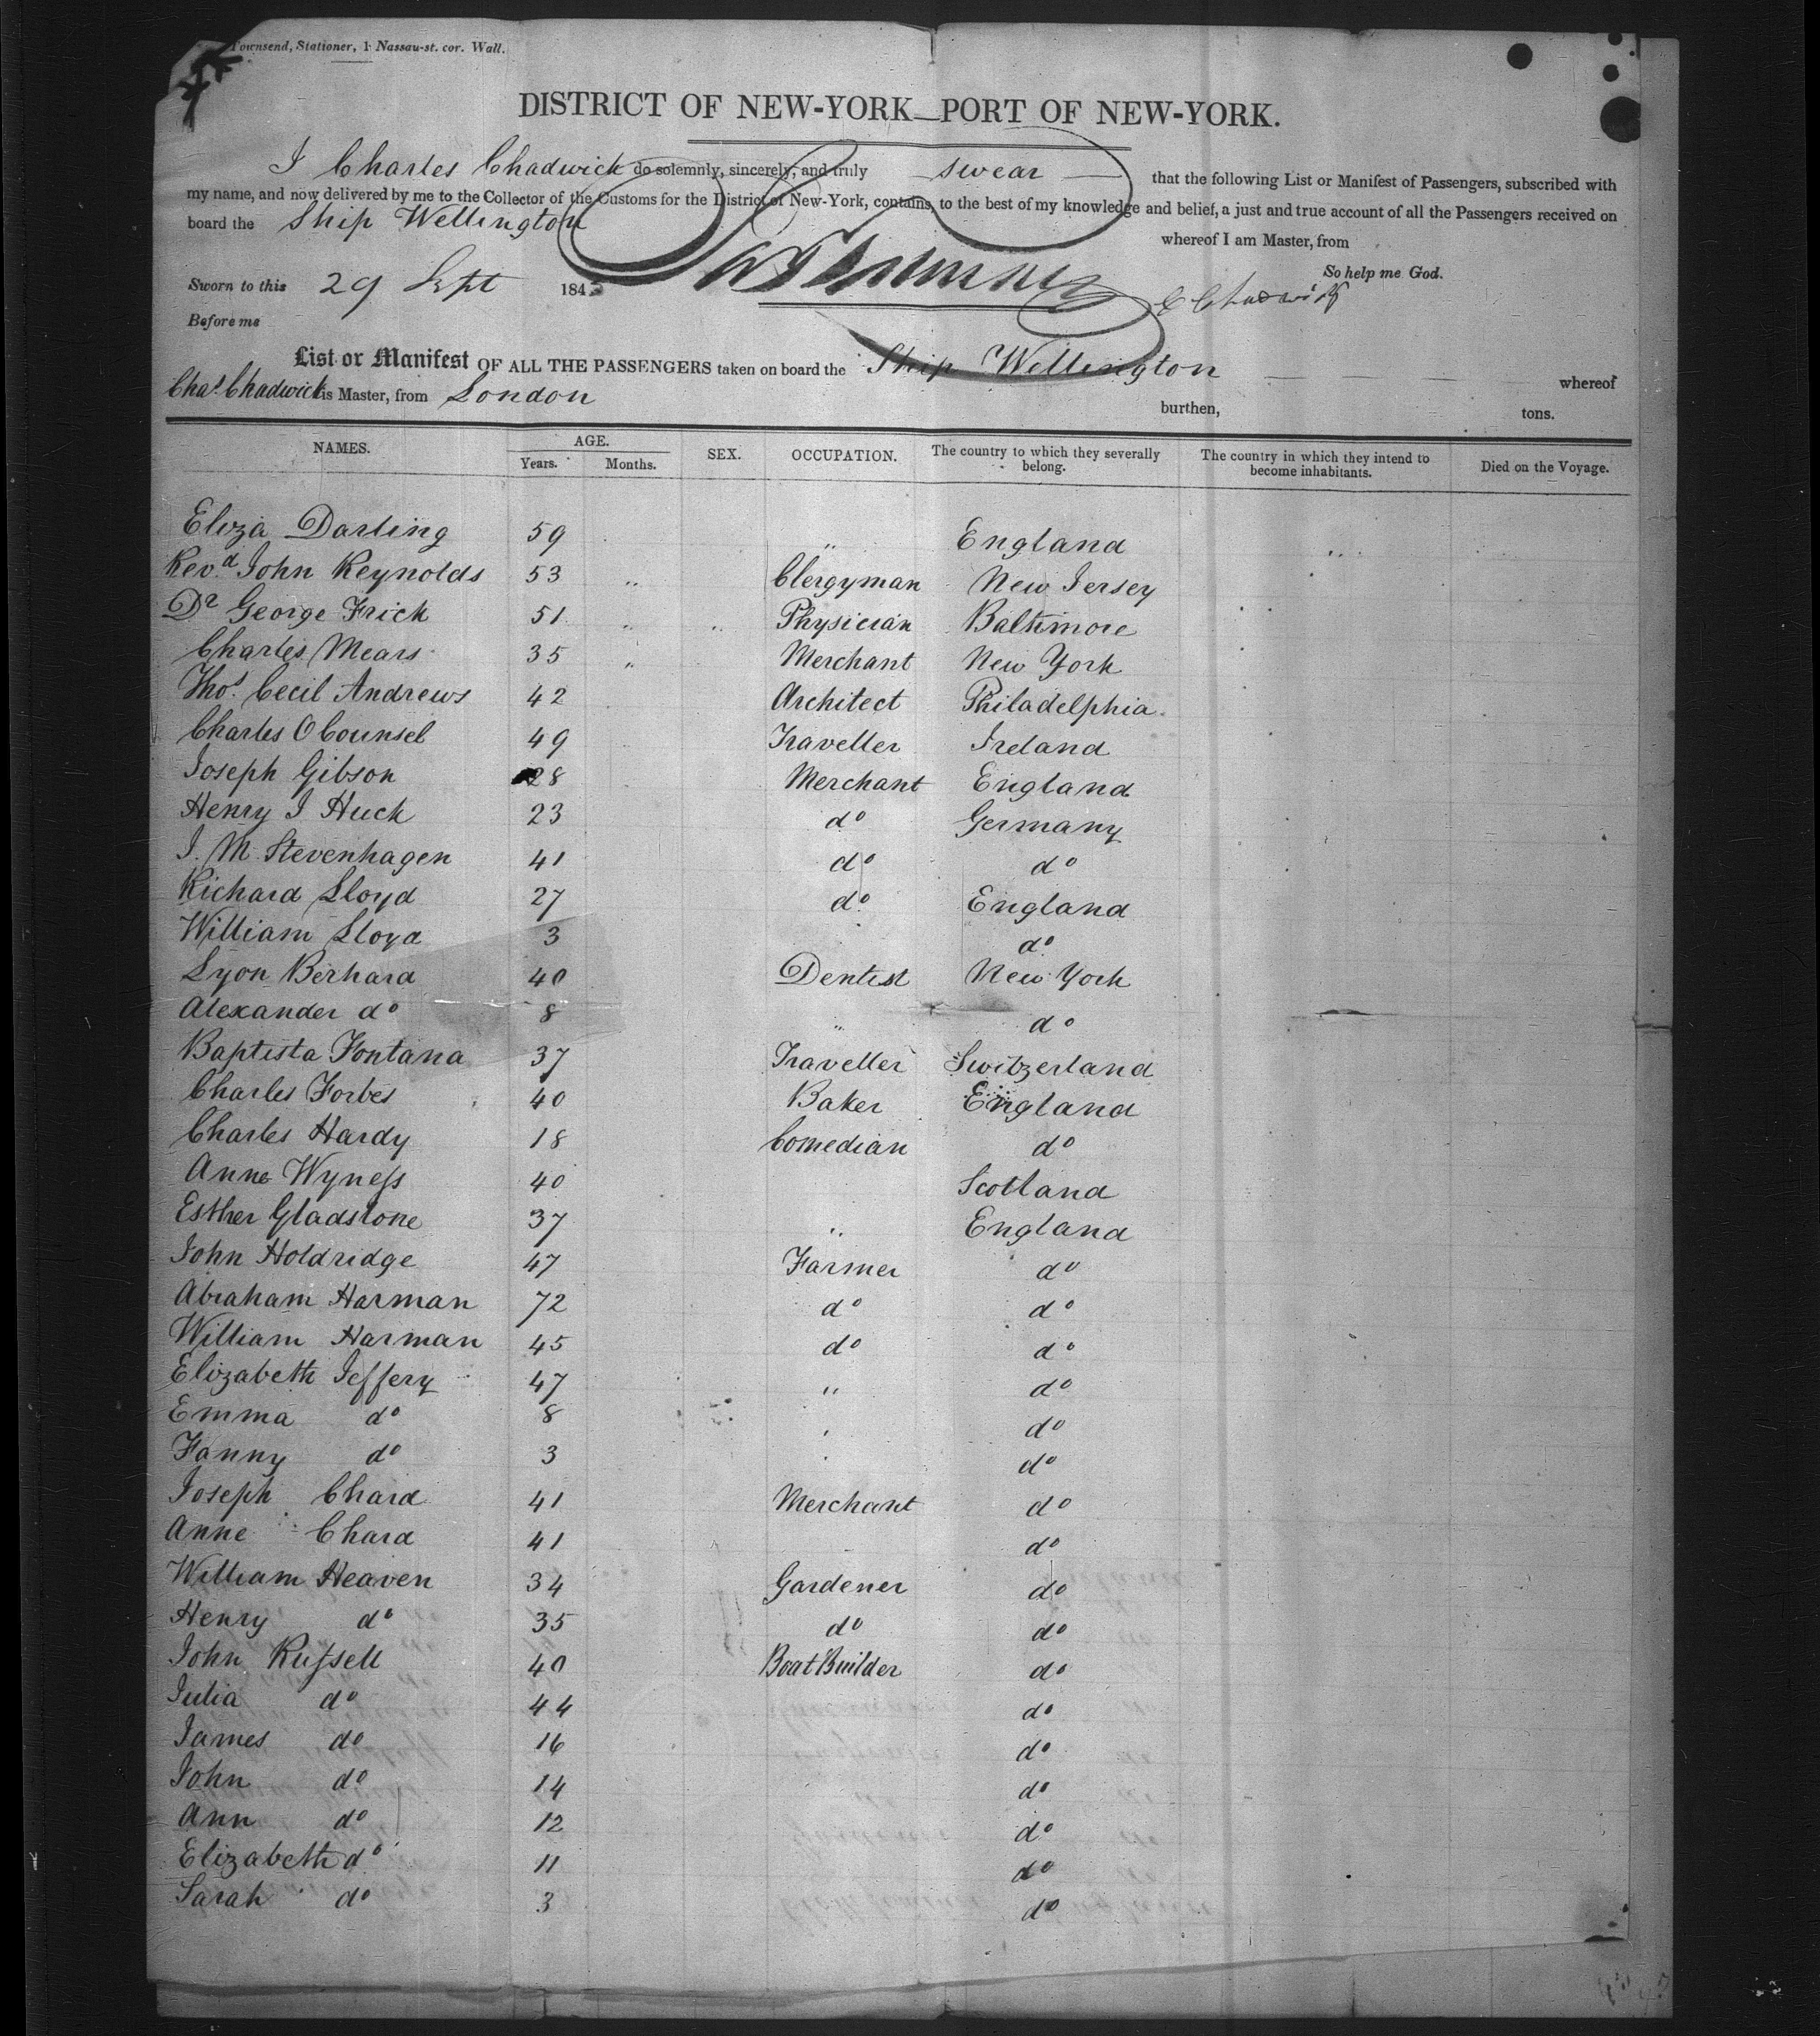 Townsend, Stationer, 1 Nassau-st. cor. Wall.
DISTRICT OF NEW-YORK—PORT OF NEW-YORK.
I Charles Chadwick do solemnly, sincerely, and truly swear that the following List or Manifest of Passengers, subscribed with
my name, and now delivered by me to the Collector of the Customs for the District of New-York, contains, to the best of my knowledge and belief, a just and true account of all the Passengers received on
board the Ship Wellington whereof I am Master, from
So help me God.
Sworn to this 29 Sept 184
C Chadwick
Before me
List or Manifest OF ALL THE PASSENGERS taken on board the Ship Wellington whereof
Chas. Chadwick is Master, from London burthen, tons.
NAMES. AGE. Years. Months. SEX. OCCUPATION. The country to which they severally belong. The country in which they intend to become inhabitants. Died on the Voyage.
Eliza Darling 59 " England "
Revd. John Reynolds 53 " Clergyman New Jersey
Dr George Frick 51 " " Physician Baltimore
Charles Mears 35 " Merchant New York
Thos. Cecil Andrews 42 Architect Philadelphia
Charles O Counsel 49 Traveller Ireland
Joseph Gibson 28 Merchant England
Henry J Huck 23 do Germany
J. M. Stevenhagen 41 do do
Richard Lloyd 27 do England
William Lloyd 3 do
Lyon Berhard 40 Dentist New York
Alexander do 8 " do
Baptista Fontana 37 Traveller Switzerland
Charles Forbes 40 Baker England
Charles Hardy 18 Comedian do
Anne Wyness 40 Scotland
Esther Gladstone 37 " England
John Holdridge 47 Farmer do
Abraham Harman 72 do do
William Harman 45 do do
Elizabeth Jeffery 47 " do
Emma do 8 do
Fanny do 3 do
Joseph Chard 41 Merchant do
Anne Chard 41 do
William Heaven 34 Gardener do
Henry do 35 do do
John Russell 40 Boat Builder do
Julia do 44 do
James do 16 do
John do 14 do
Ann do 12 do
Elizabeth do 11 do
Sarah do 3 do